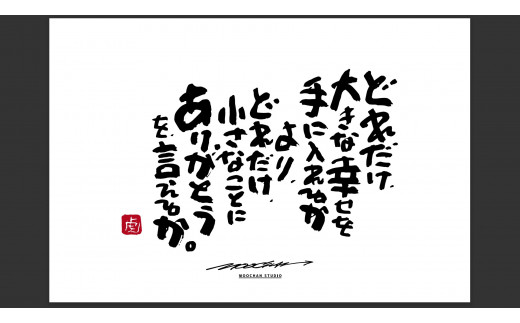 どれだけ
大きな幸せを
手に入れるか
より
どれだけ
小さなことに
ありがとう
を言えるか。
虎
MOOCHAN
MOOCHAN STUDIO